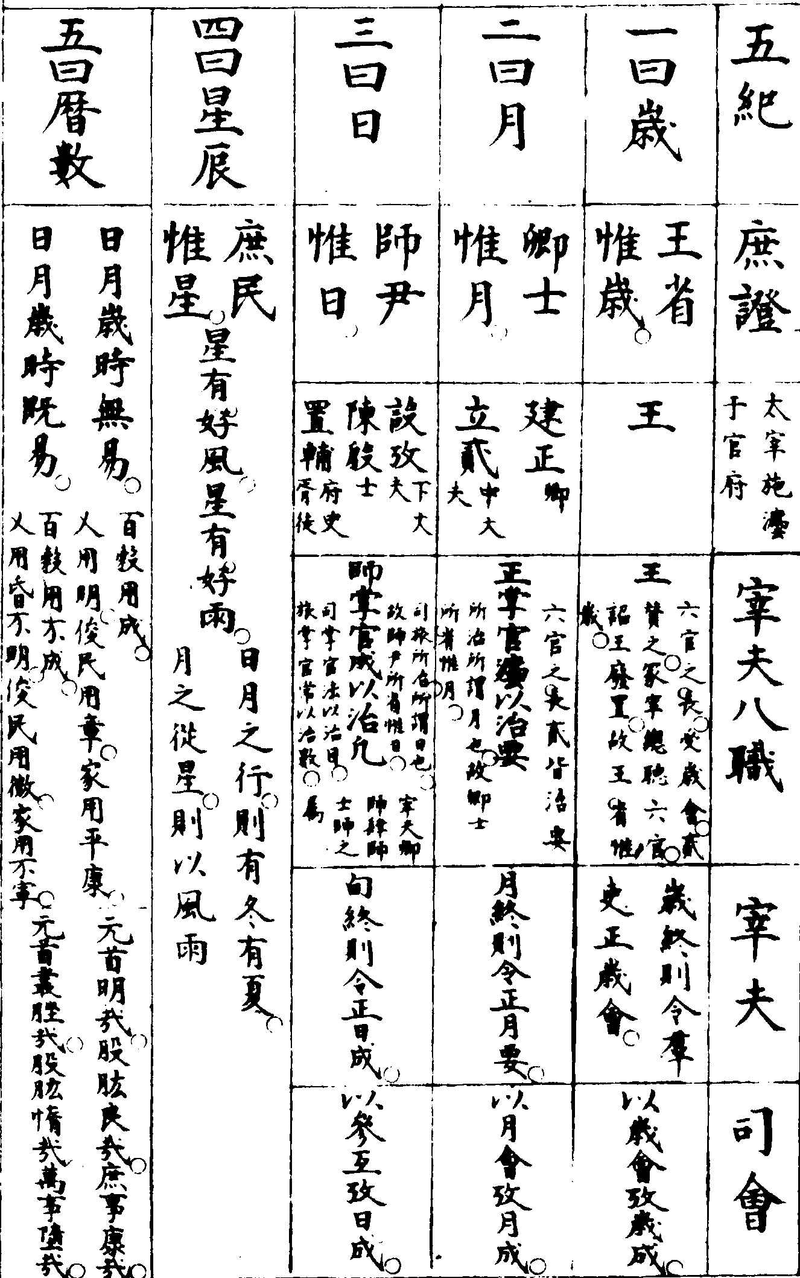 五紀
庶證
太宰施灋
于官府
宰夫八職
宰夫
司會
一曰歲
王省
惟歲
王
王
六官之長受歲會貳
贊之冢宰總聽六官
詔王廢置故王省惟
歲
歲終則令羣
吏正歲會
以歲會攷歲成
二曰月
卿士
惟月
建正卿
立貳中大
夫
正掌官灋以治要
六官之長貳皆治要
所治所謂月也故卿士
所省惟月
月終則令正月要
以月會攷月成
三曰日
師尹
惟日
設攷下大
夫
陳殷士
置輔府史
胥徒
師掌官成以治凡
司旅所治所謂日也
故師尹所省惟日
司掌官法以治目
旅掌官常以治數
宰夫鄉
師肆師
士師之
屬
旬終則令正日成
以參互攷日成
四曰星辰
庶民
惟星
星有好風星有好雨
日月之行則有冬有夏
月之從星則以風雨
五曰曆數
日月歲時無易
日月歲時既易
百穀用成
乂用明俊民用章家用平康
百穀用不成
乂用昏不明俊民用微家用不寧
元首明哉股肱良哉庶事康哉
元首叢脞哉股肱惰哉萬事墮哉